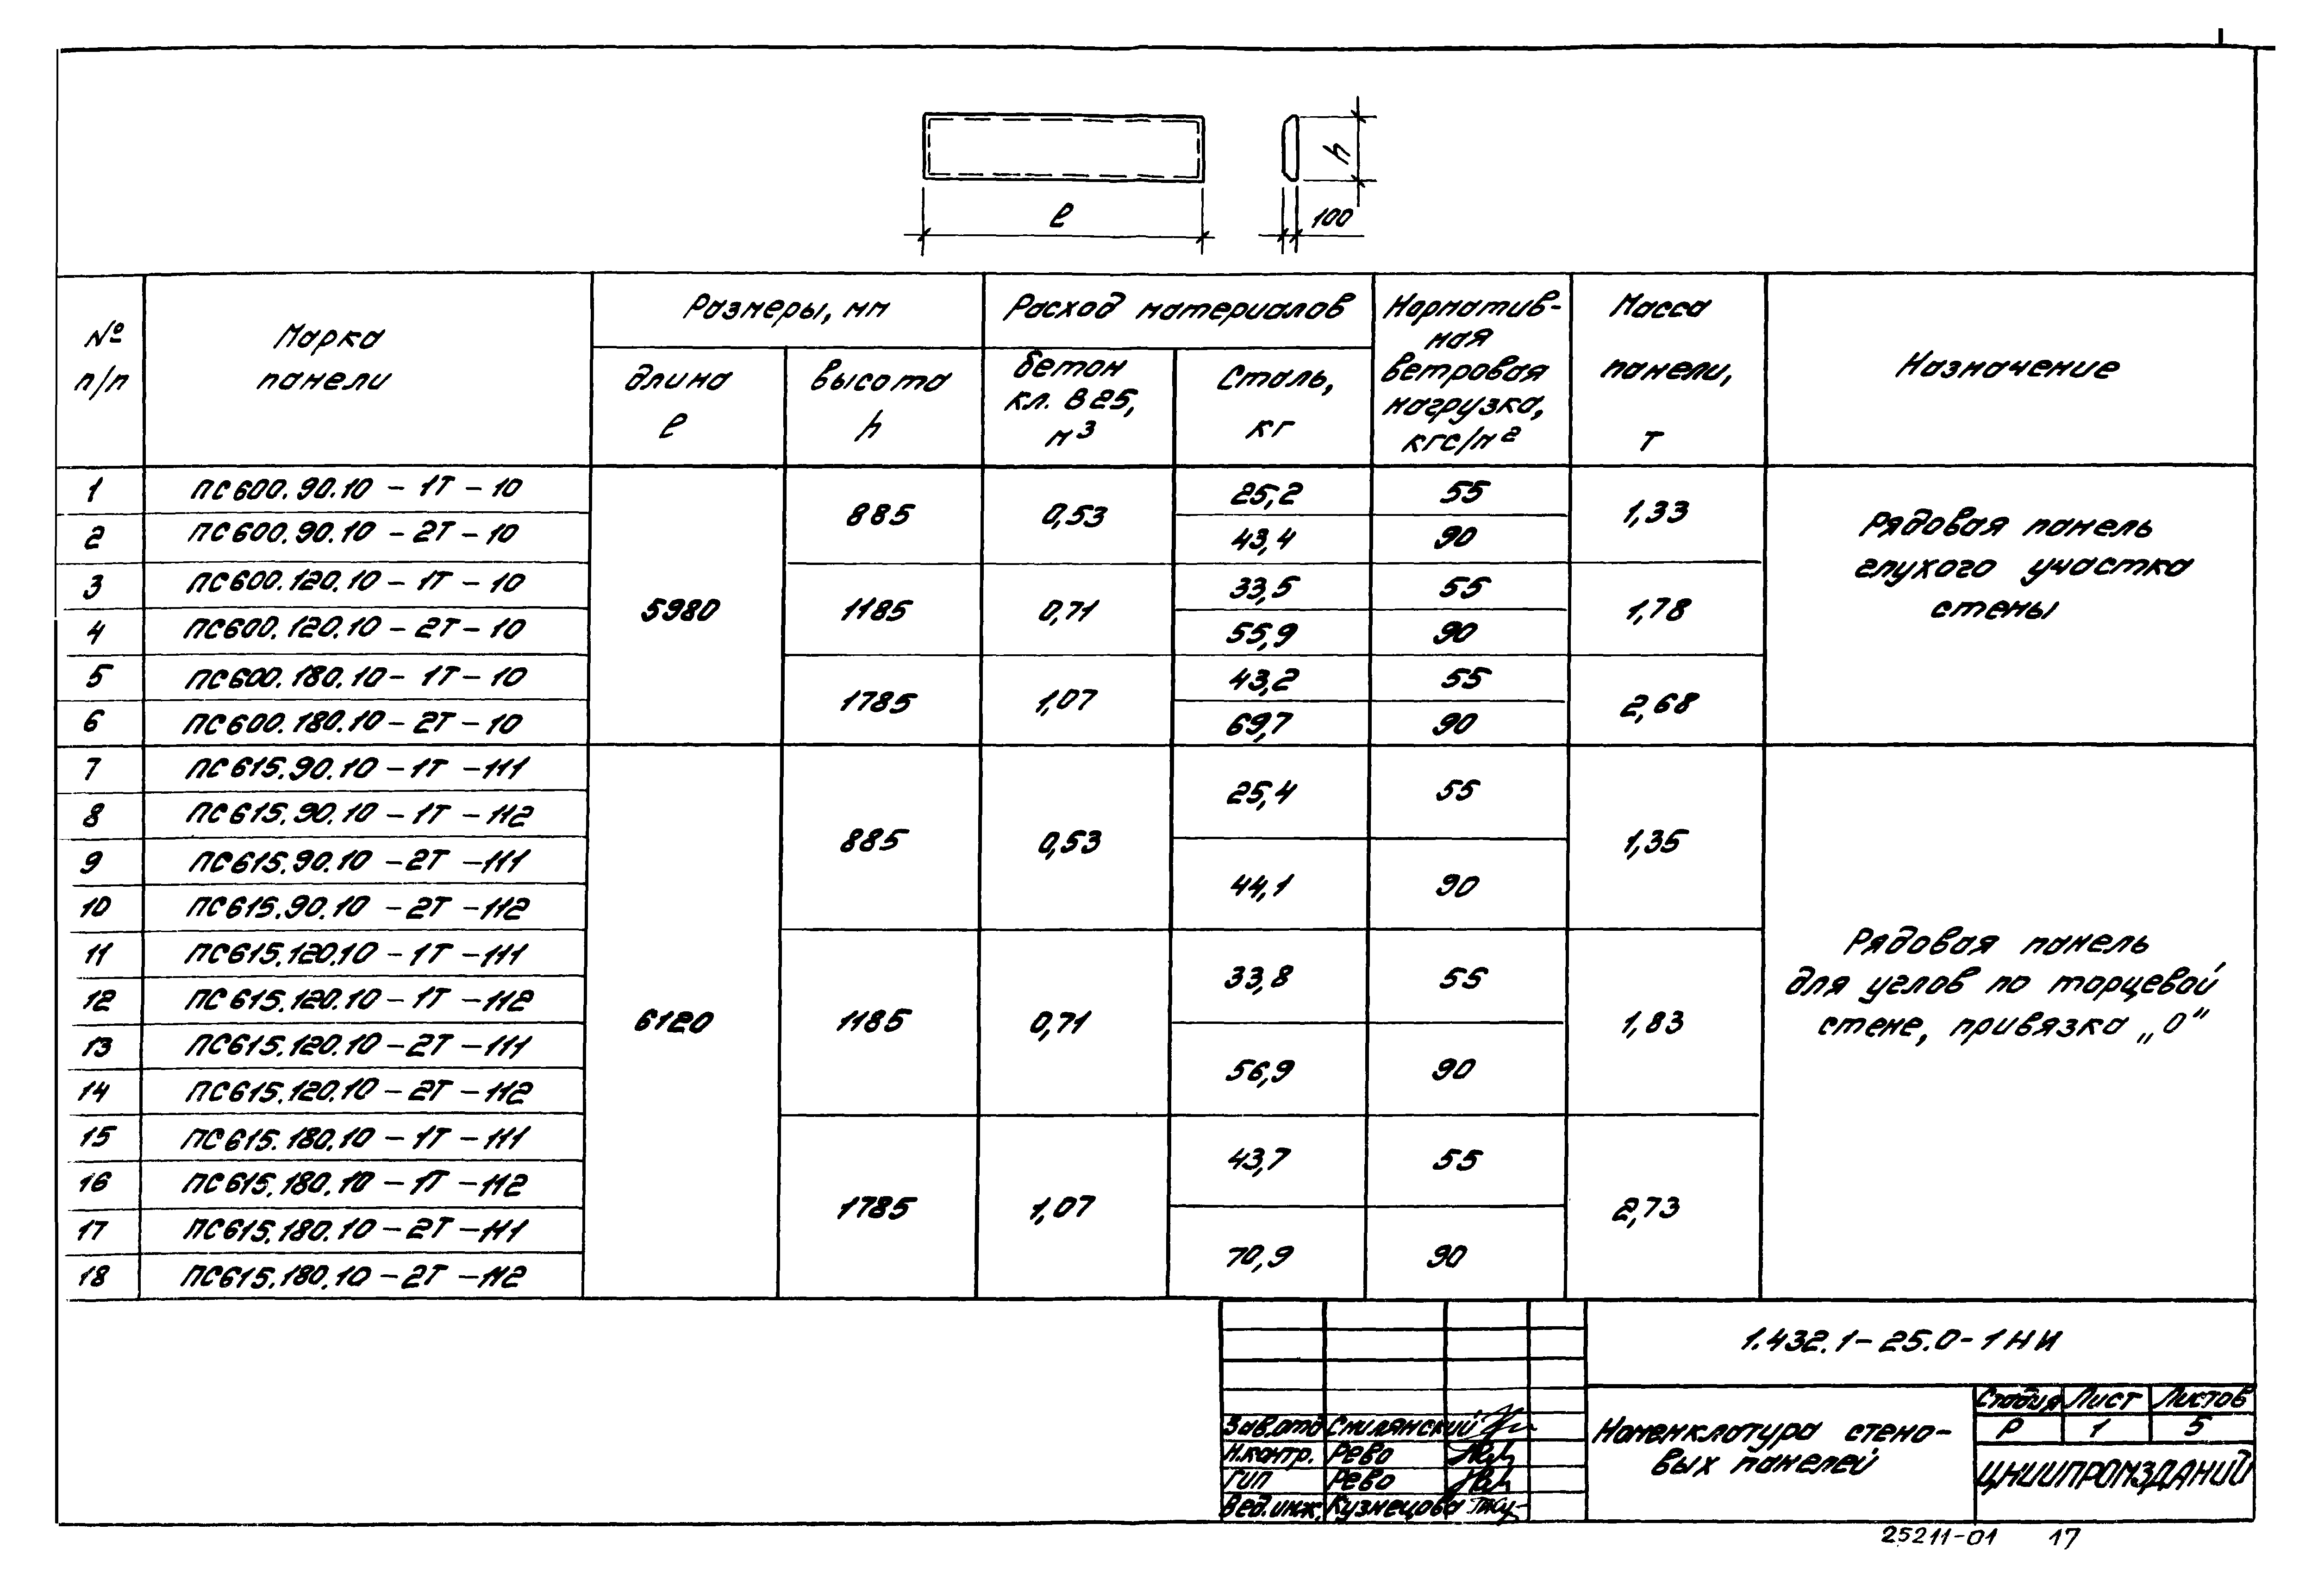 h
l
100
№ п/п
Марка панели
Размеры, мм
длина l
высота h
Расход материалов
бетон кл. В 25, м³
Сталь, кг
Норматив-
ная
ветровая
нагрузка,
кгс/м²
Масса панели, т
Назначение
1 ПС600.90.10 – 1Т – 10 5980 885 0,53 25,2 55 1,33
2 ПС600.90.10 – 2Т – 10 43,4 90
3 ПС600.120.10 – 1Т – 10 1185 0,71 33,5 55 1,78
4 ПС600.120.10 – 2Т – 10 55,9 90
5 ПС600.180.10 – 1Т – 10 1785 1,07 43,2 55 2,68
6 ПС600.180.10 – 2Т – 10 69,7 90
Рядовая панель
глухого участка
стены
7 ПС615.90.10 – 1Т – 111 6120 885 0,53 25,4 55 1,35
8 ПС615.90.10 – 1Т – 112
9 ПС615.90.10 – 2Т – 111 44,1 90
10 ПС615.90.10 – 2Т – 112
11 ПС615.120.10 – 1Т – 111 1185 0,71 33,8 55 1,83
12 ПС615.120.10 – 1Т – 112
13 ПС615.120.10 – 2Т – 111 56,9 90
14 ПС615.120.10 – 2Т – 112
15 ПС615.180.10 – 1Т – 111 1785 1,07 43,7 55 2,73
16 ПС615.180.10 – 1Т – 112
17 ПС615.180.10 – 2Т – 111 70,9 90
18 ПС615.180.10 – 2Т – 112
Рядовая панель
для углов по торцевой
стене, привязка „0"
1.432.1– 25.0– 1НИ
Зав.отд Смилянский
Н.контр. Рево
ГИП Рево
Вед.инж. Кузнецова
Номенклатура стено-
вых панелей
Стадия Лист Листов
Р 1 5
ЦНИИПРОМЗДАНИЙ
25211-01 17